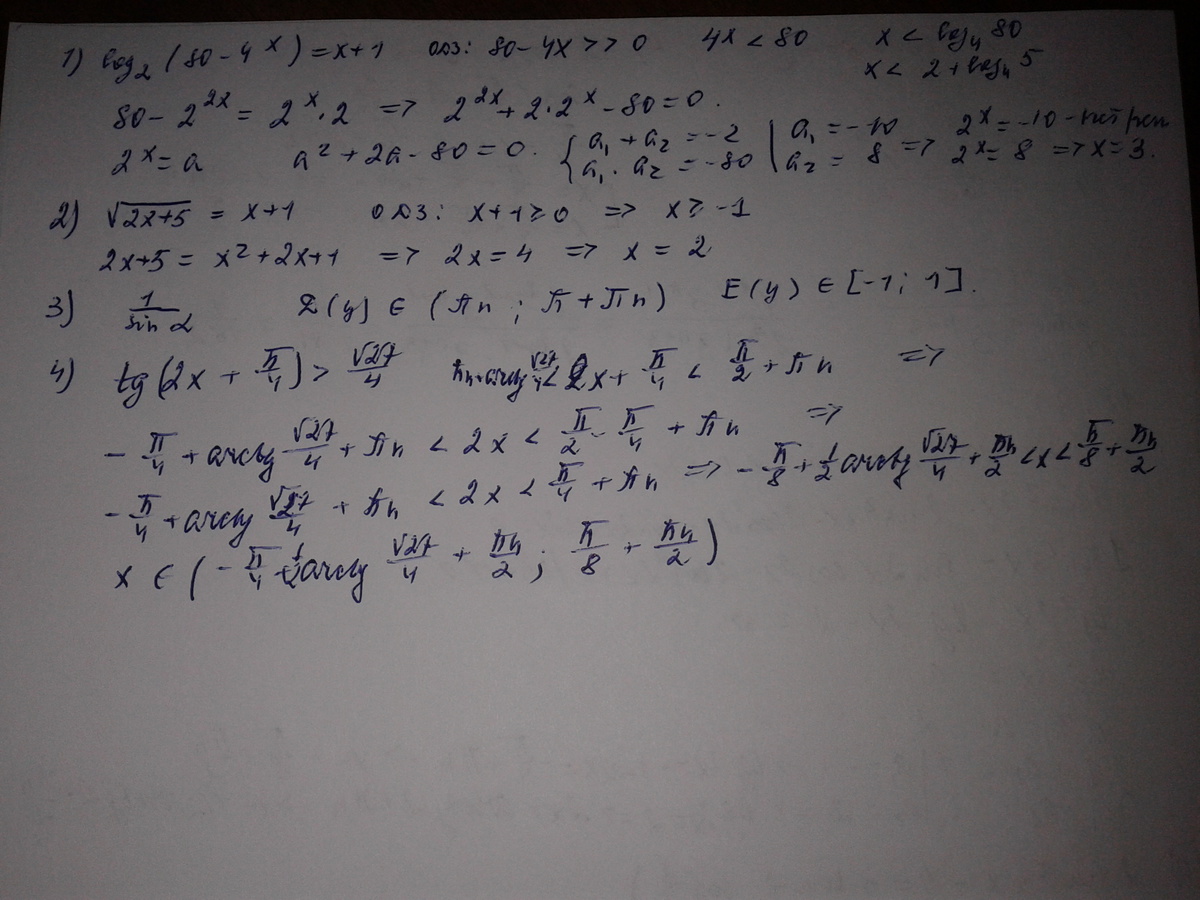 1) log₂(80 - 4^x) = x+1 ОДЗ: 80 - 4x >> 0 4^x < 80 x < log₄ 80
x < 2 + log₄ 5
80 - 2^2x = 2^x · 2 => 2^2x + 2·2^x - 80 = 0.
2^x = a a² + 2a - 80 = 0. { a₁ + a₂ = -2 | a₁ = -10 => 2^x = -10 - нет реш
a₁ · a₂ = -80 | a₂ = 8 2^x = 8 => x = 3.
2) √(2x+5) = x+1 ОДЗ: x+1 ≥ 0 => x ≥ -1
2x+5 = x² + 2x+1 => 2x = 4 => x = 2
3) 1/sin α D(y) ∈ (πn ; π + πn) E(y) ∈ [-1 ; 1].
4) tg(2x + π/4) > √27/4 πn + arctg √27/4 < 2x + π/4 < π/2 + πn =>
- π/4 + arctg √27/4 + πn < 2x < π/2 - π/4 + πn =>
- π/4 + arctg √27/4 + πn < 2x < π/4 + πn => - π/8 + 1/2 arctg √27/4 + πn/2 < x < π/8 + πn/2
x ∈ ( - π/4 + 1/2 arctg √27/4 + πn/2 ; π/8 + πn/2 )